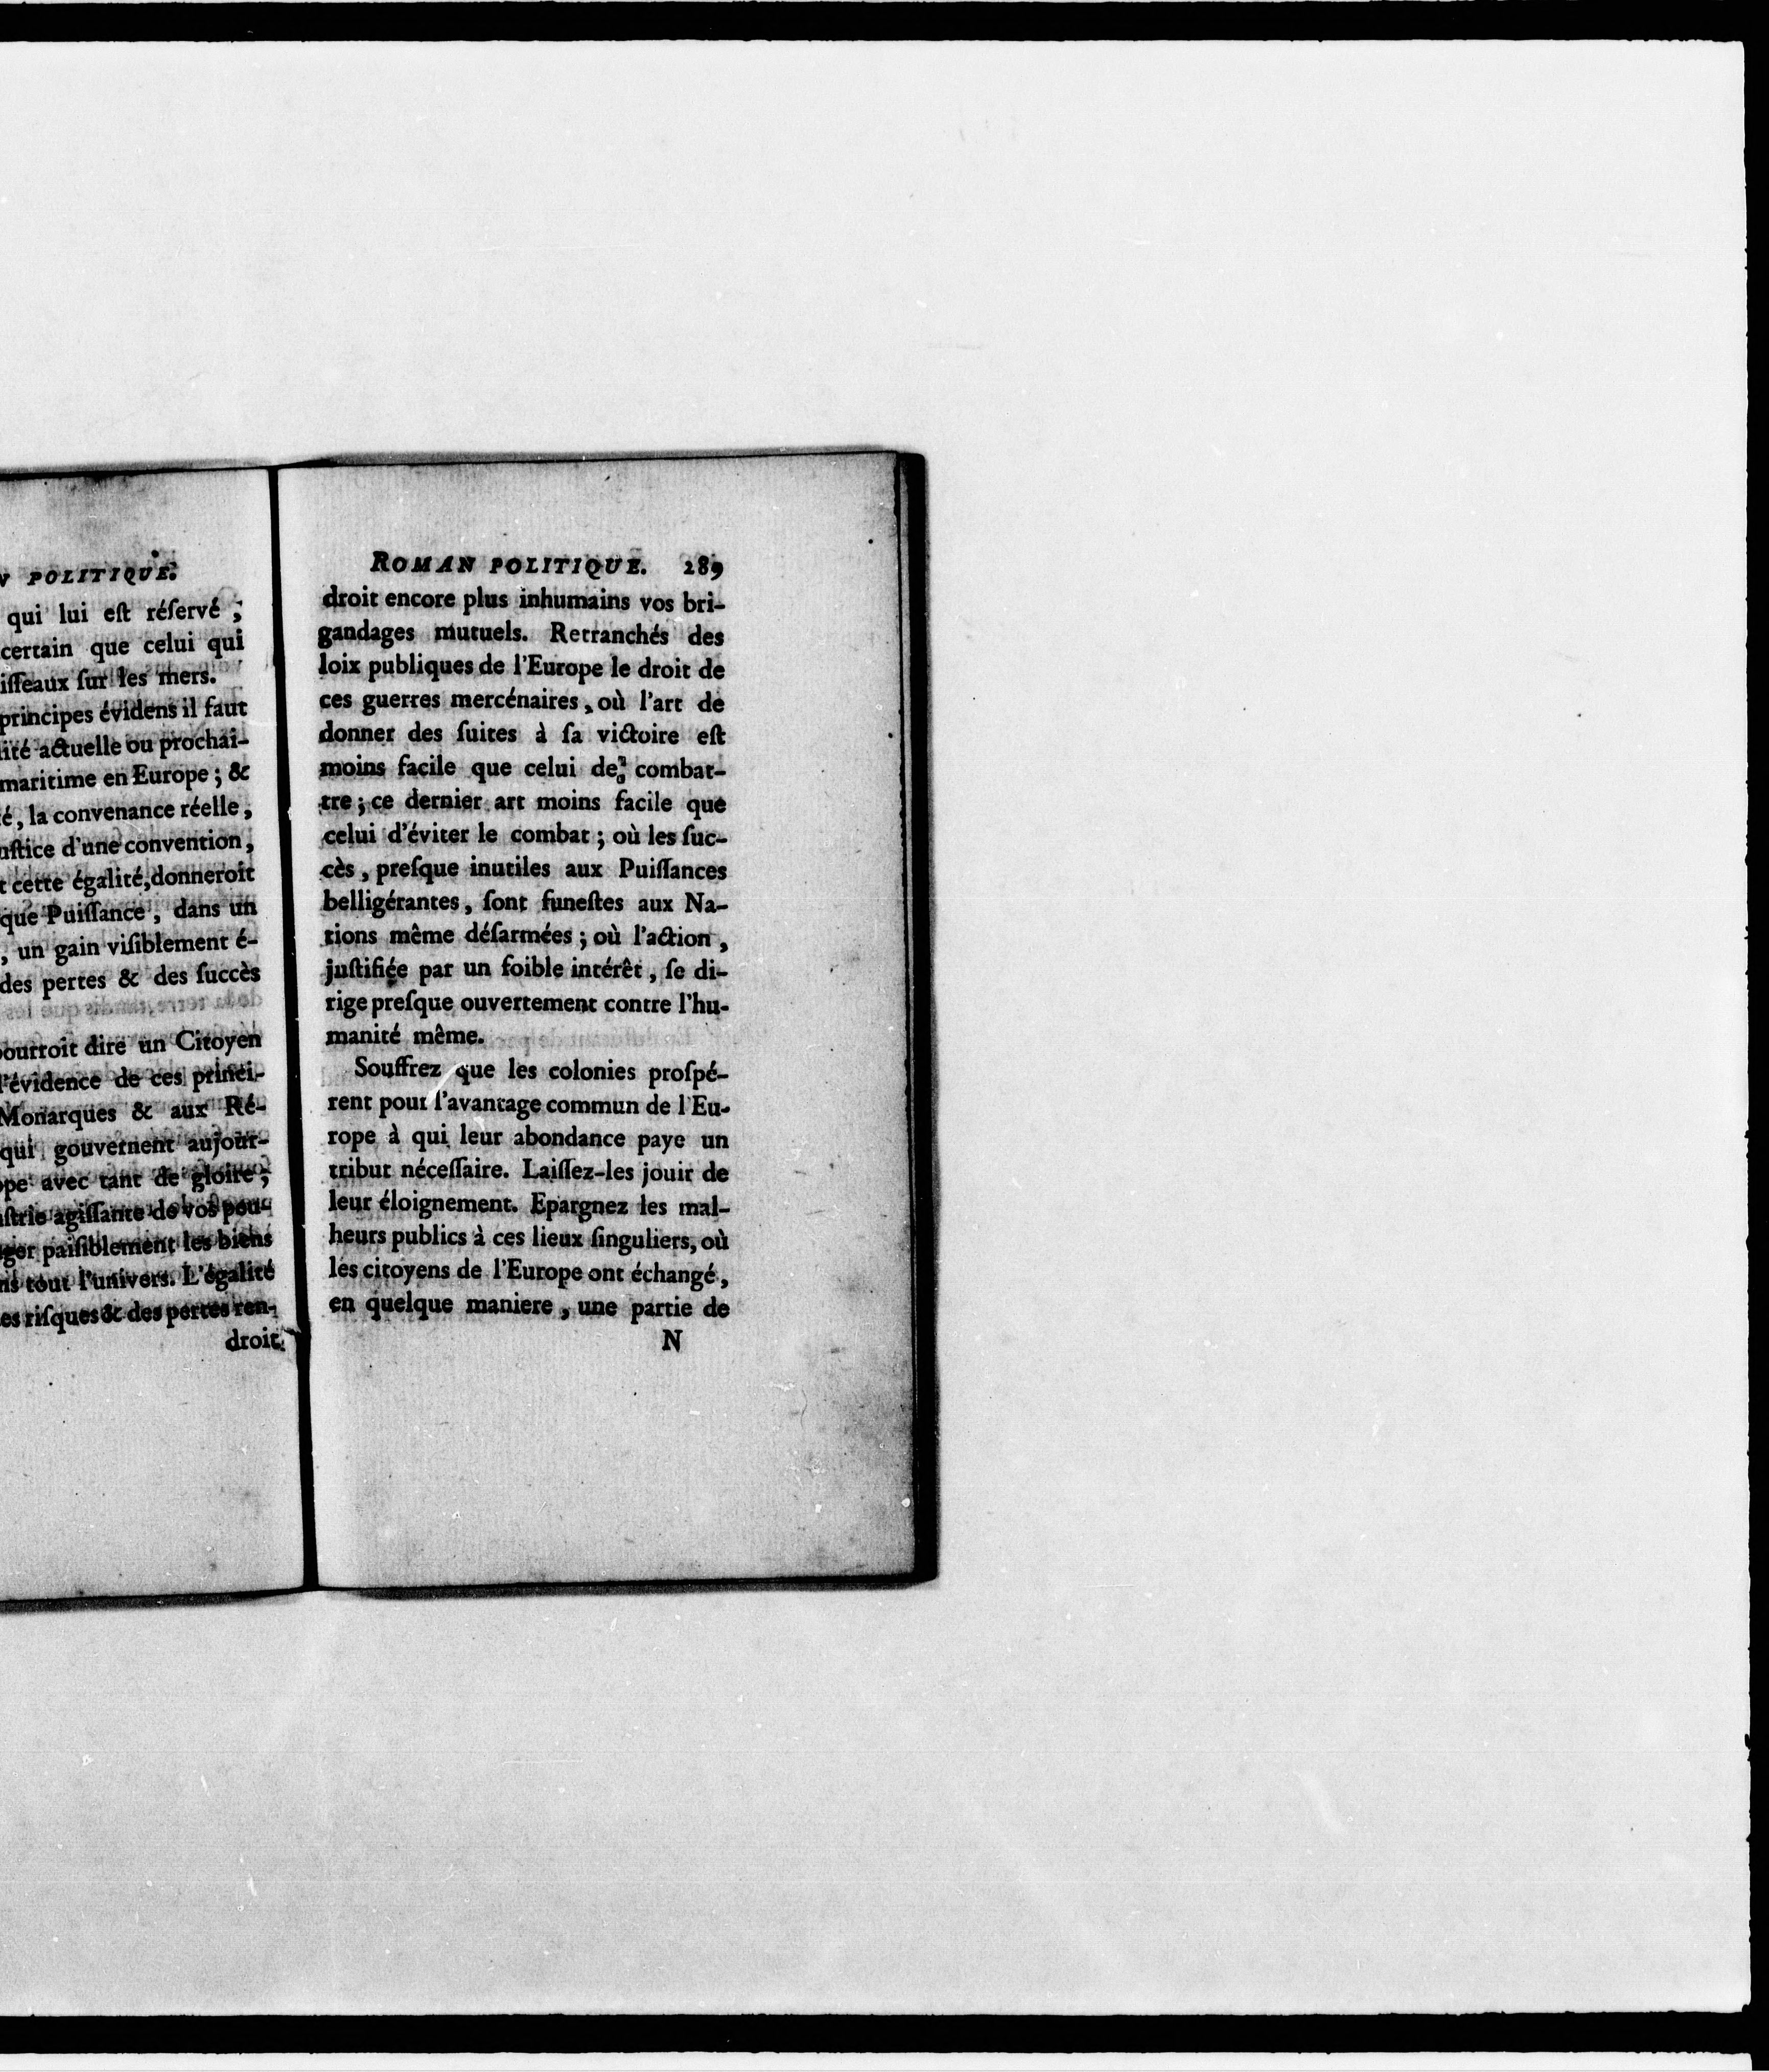 POLITIQUE.
qui lui eſt réſervé ;
certain que celui qui
iſſeaux ſur les mers.
principes évidens il faut
lité actuelle ou prochai-
maritime en Europe ; &
é, la convenance réelle,
uſtice d'une convention,
t cette égalité, donneroit
que Puiſſance, dans un
, un gain viſiblement é-
des pertes & des ſuccès
pourroit dire un Citoyen
l'évidence de ces princi-
Monarques & aux Ré-
qui gouvernent aujour-
ope avec tant de gloire ;
uſtrie agiſſante de vos peu-
ger paiſiblement les biens
ns tout l'univers. L'égalité
es riſques & des pertes ren-
droit
ROMAN POLITIQUE. 289
droit encore plus inhumains vos bri-
gandages mutuels. Retranchés des
loix publiques de l'Europe le droit de
ces guerres mercénaires, où l'art de
donner des ſuites à ſa victoire eſt
moins facile que celui de combat-
tre ; ce dernier art moins facile que
celui d'éviter le combat ; où les ſuc-
cès, preſque inutiles aux Puiſſances
belligérantes, ſont funeſtes aux Na-
tions même déſarmées ; où l'action,
juſtifiée par un foible intérêt, ſe di-
rige preſque ouvertement contre l'hu-
manité même.
Souffrez que les colonies proſpé-
rent pour l'avantage commun de l'Eu-
rope à qui leur abondance paye un
tribut néceſſaire. Laiſſez-les jouir de
leur éloignement. Epargnez les mal-
heurs publics à ces lieux ſinguliers, où
les citoyens de l'Europe ont échangé,
en quelque maniere, une partie de
N